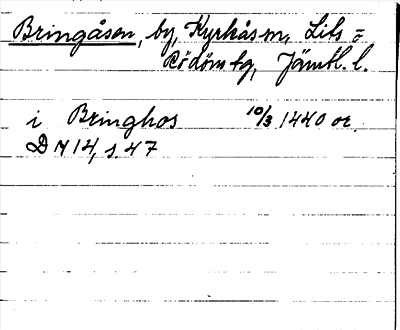 Bringåsen, by, Kyrkås sn, Lits =
Rödöns tg, Jämtl. l.
i Bringhos 10/3 1440 or.
D N 14, s. 47